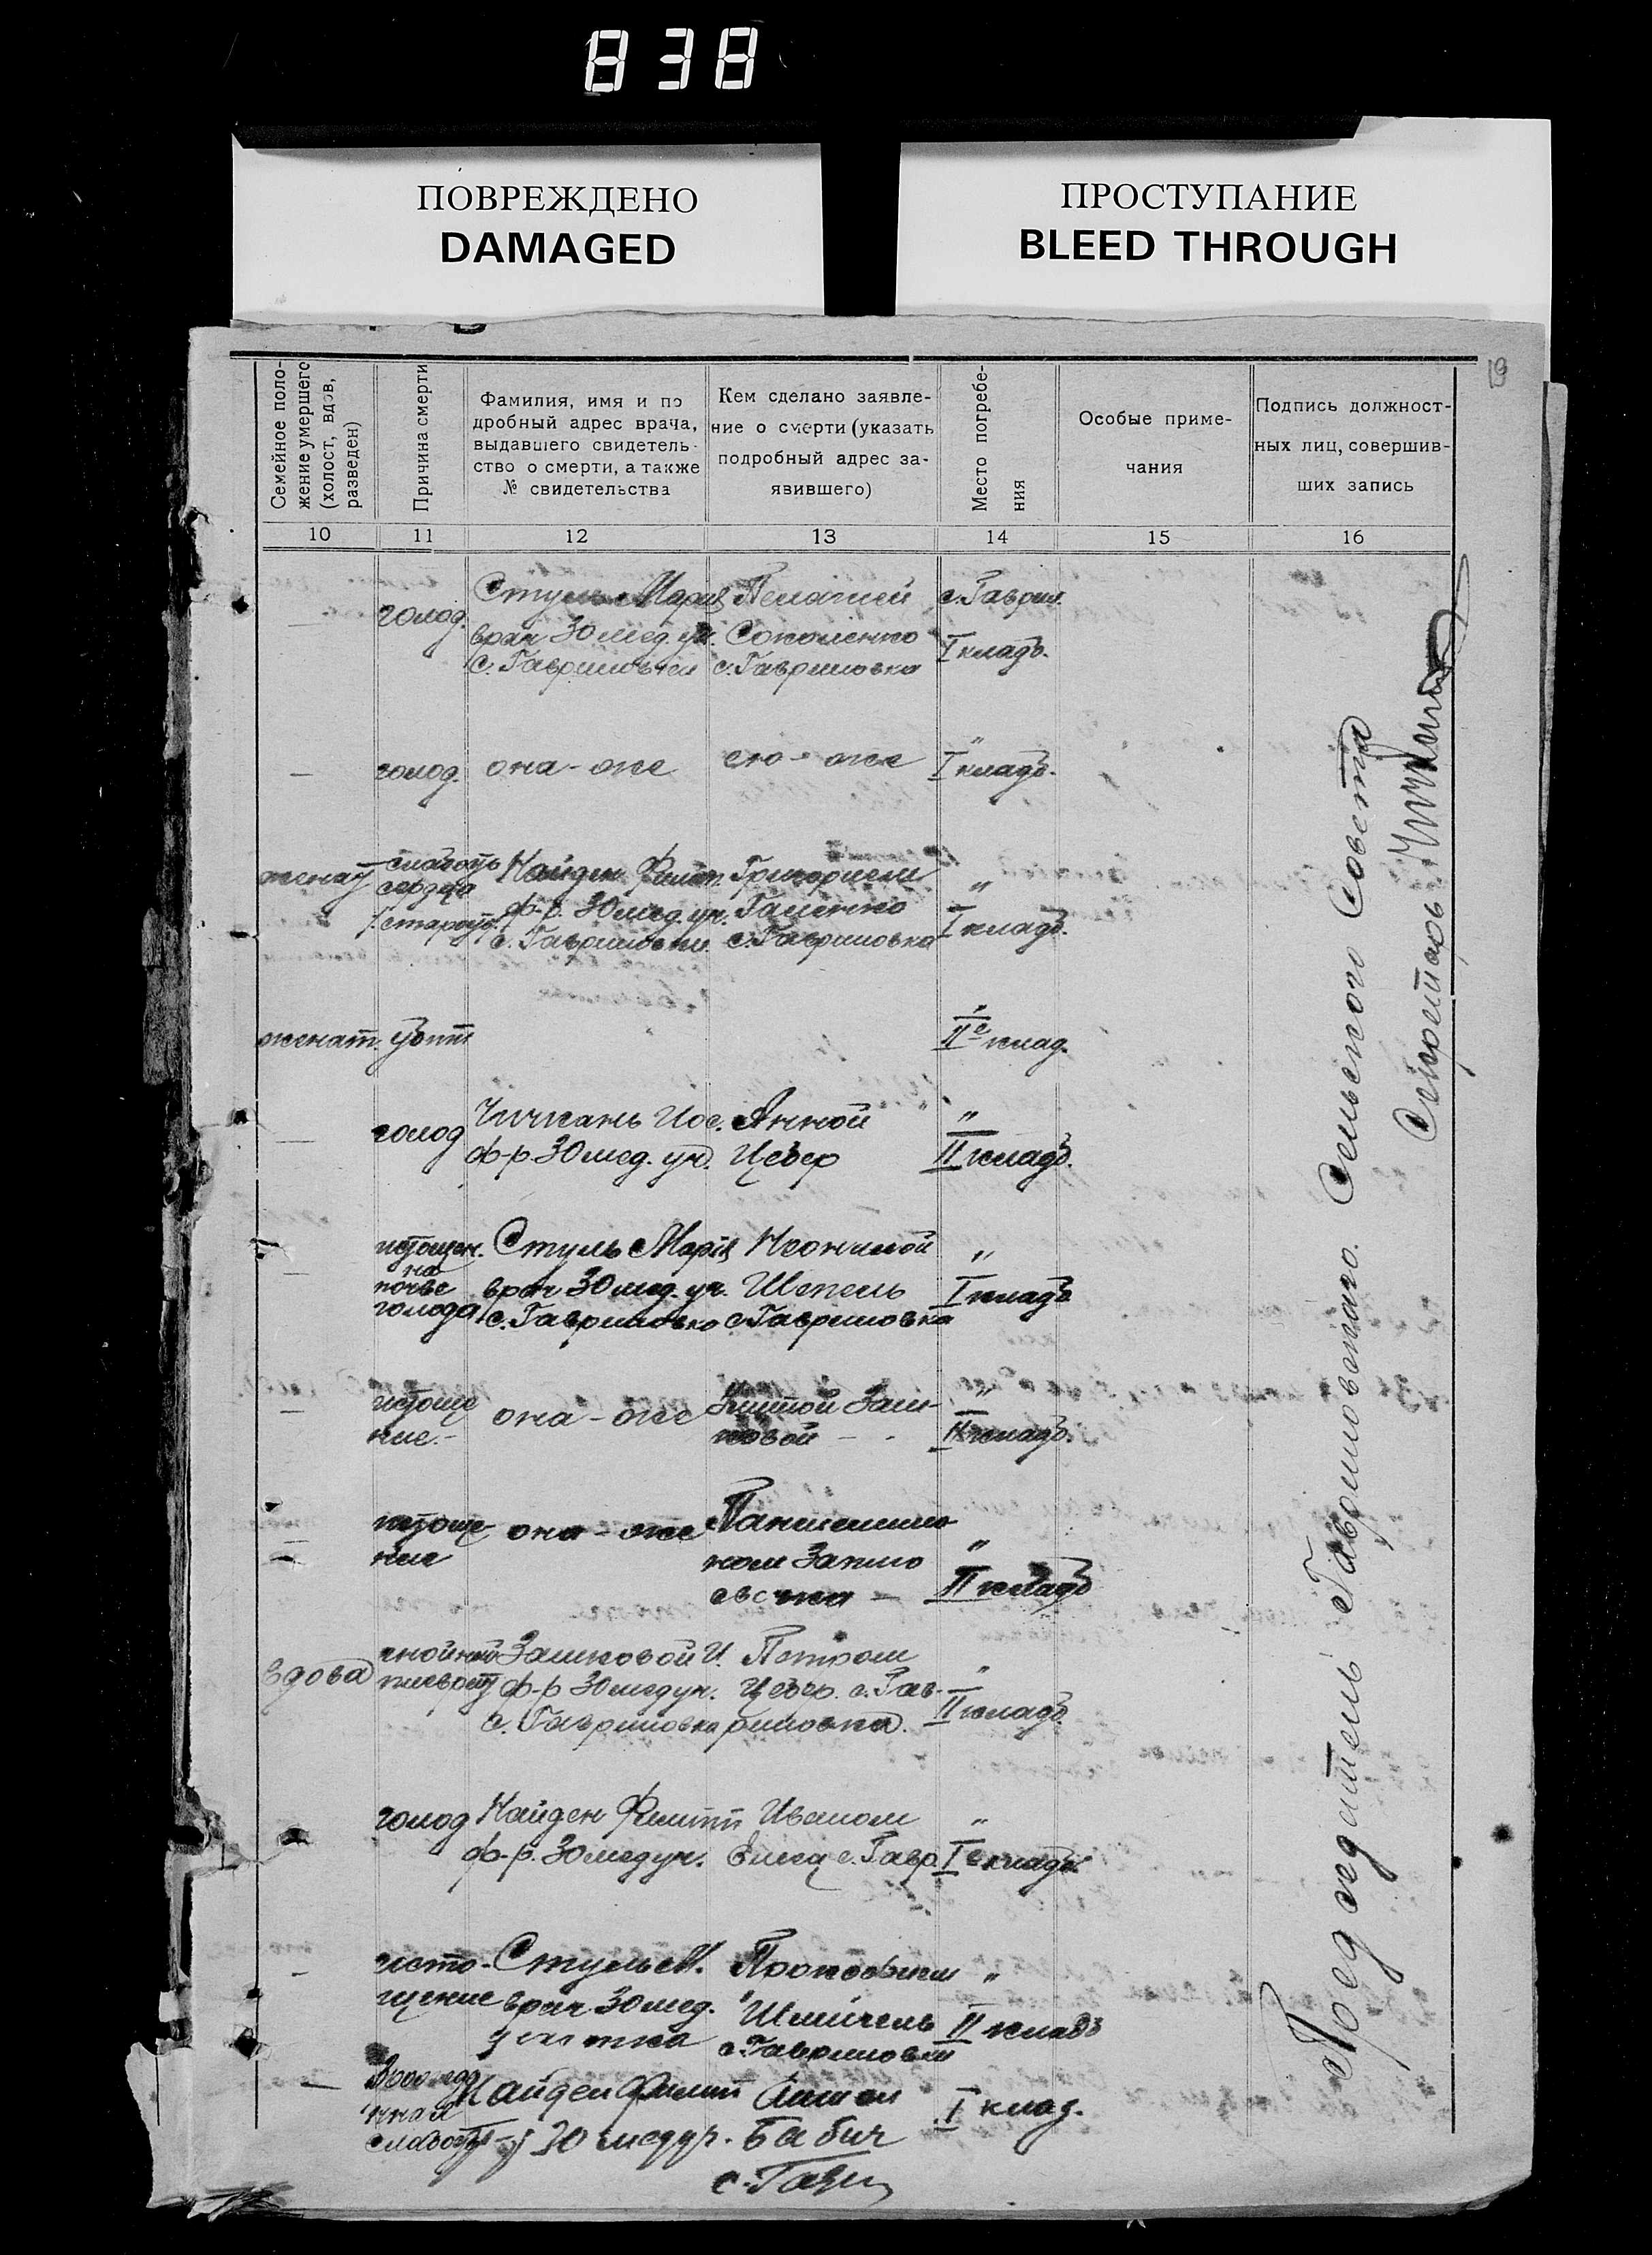 838
ПОВРЕЖДЕНО
DAMAGED
ПРОСТУПАНИЕ
BLEED THROUGH
19
Семейное поло-
жение умершего
(холост, вдов,
разведен)
Причина смерти
Фамилия, имя и по
дробный адрес врача,
выдавшего свидетель-
ство о смерти, а также
№ свидетельства
Кем сделано заявле-
ние о смерти (указать
подробный адрес за-
явившего)
Место погребе-
ния
Особые приме-
чания
Подпись должност-
ных лиц, совершив-
ших запись
10 11 12 13 14 15 16
— голод.
Стуль Мария
врач 30 мед. уч.
с. Гавриловки
Пелагией
Соколенко
с. Гавриловка
с. Гаврил.
I кладб.
— голод. она-же ею-же
"
I кладб.
женат
слабость
сердца
старость.
Найден Филип.
ф-р. 30 мед. уч.
с. Гавриловки.
Григорием
Галенко
с. Гавриловка
"
I кладб.
женат. убит
"
II е клад.
— голод
Чичкань Иос.
ф-р. 30 мед. уч.
Анной
Цебер
"
II кладб.
—
истощен.
на
почве
голода
Стуль Мария
врач 30 мед. уч.
с. Гавриловка
Шепель
с. Гавриловка
"
I кладб
—
истоще
ние.-
она-же
"
II кладб.
—
истоще
ние
она-же
"
II кладб
вдова
гнойный
плеврит
Зашковой И.
ф-р 30 мед уч.
с. Гавриловка
Петром
Цебер. с. Гав-
риловка.
"
II кладб.
голод
Найден Филипп
ф-р. 30 мед уч.
Иваном
с. Гавр.
"
I кладб.
-
исто-
щение
Стуль М.
врач 30 мед.
участка
Прокофием
с. Гавриловки
"
II кладб
—
слабость
Найден Филип
30 мед уч.
Бабич
с. Гавр
I клад.
Председатель Гавриловского Сельского Совета
Секретарь